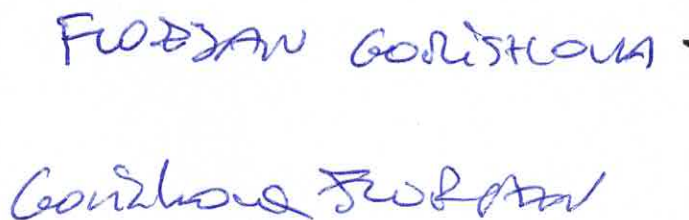 FLORJAN GORIŠKOVA
Goriškova FLORJAN